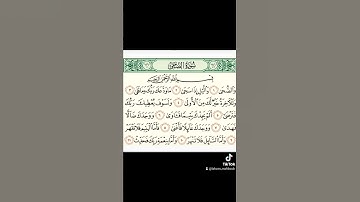 سُورَةُ الضُّحَىٰ
بِسْمِ ٱللَّهِ ٱلرَّحْمَٰنِ ٱلرَّحِيمِ
وَٱلضُّحَىٰ ١ وَٱلَّيْلِ إِذَا سَجَىٰ ٢ مَا وَدَّعَكَ رَبُّكَ وَمَا قَلَىٰ ٣
وَلَلْءَاخِرَةُ خَيْرٌ لَّكَ مِنَ ٱلْأُولَىٰ ٤ وَلَسَوْفَ يُعْطِيكَ رَبُّكَ
فَتَرْضَىٰ ٥ أَلَمْ يَجِدْكَ يَتِيمًا فَـَٔاوَىٰ ٦ وَوَجَدَكَ ضَآلًّا
فَهَدَىٰ ٧ وَوَجَدَكَ عَآئِلًا فَأَغْنَىٰ ٨ فَأَمَّا ٱلْيَتِيمَ فَلَا تَقْهَرْ
٩ وَأَمَّا ٱلسَّآئِلَ فَلَا تَنْهَرْ ١٠ وَأَمَّا بِنِعْمَةِ رَبِّكَ فَحَدِّثْ ١١
TikTok